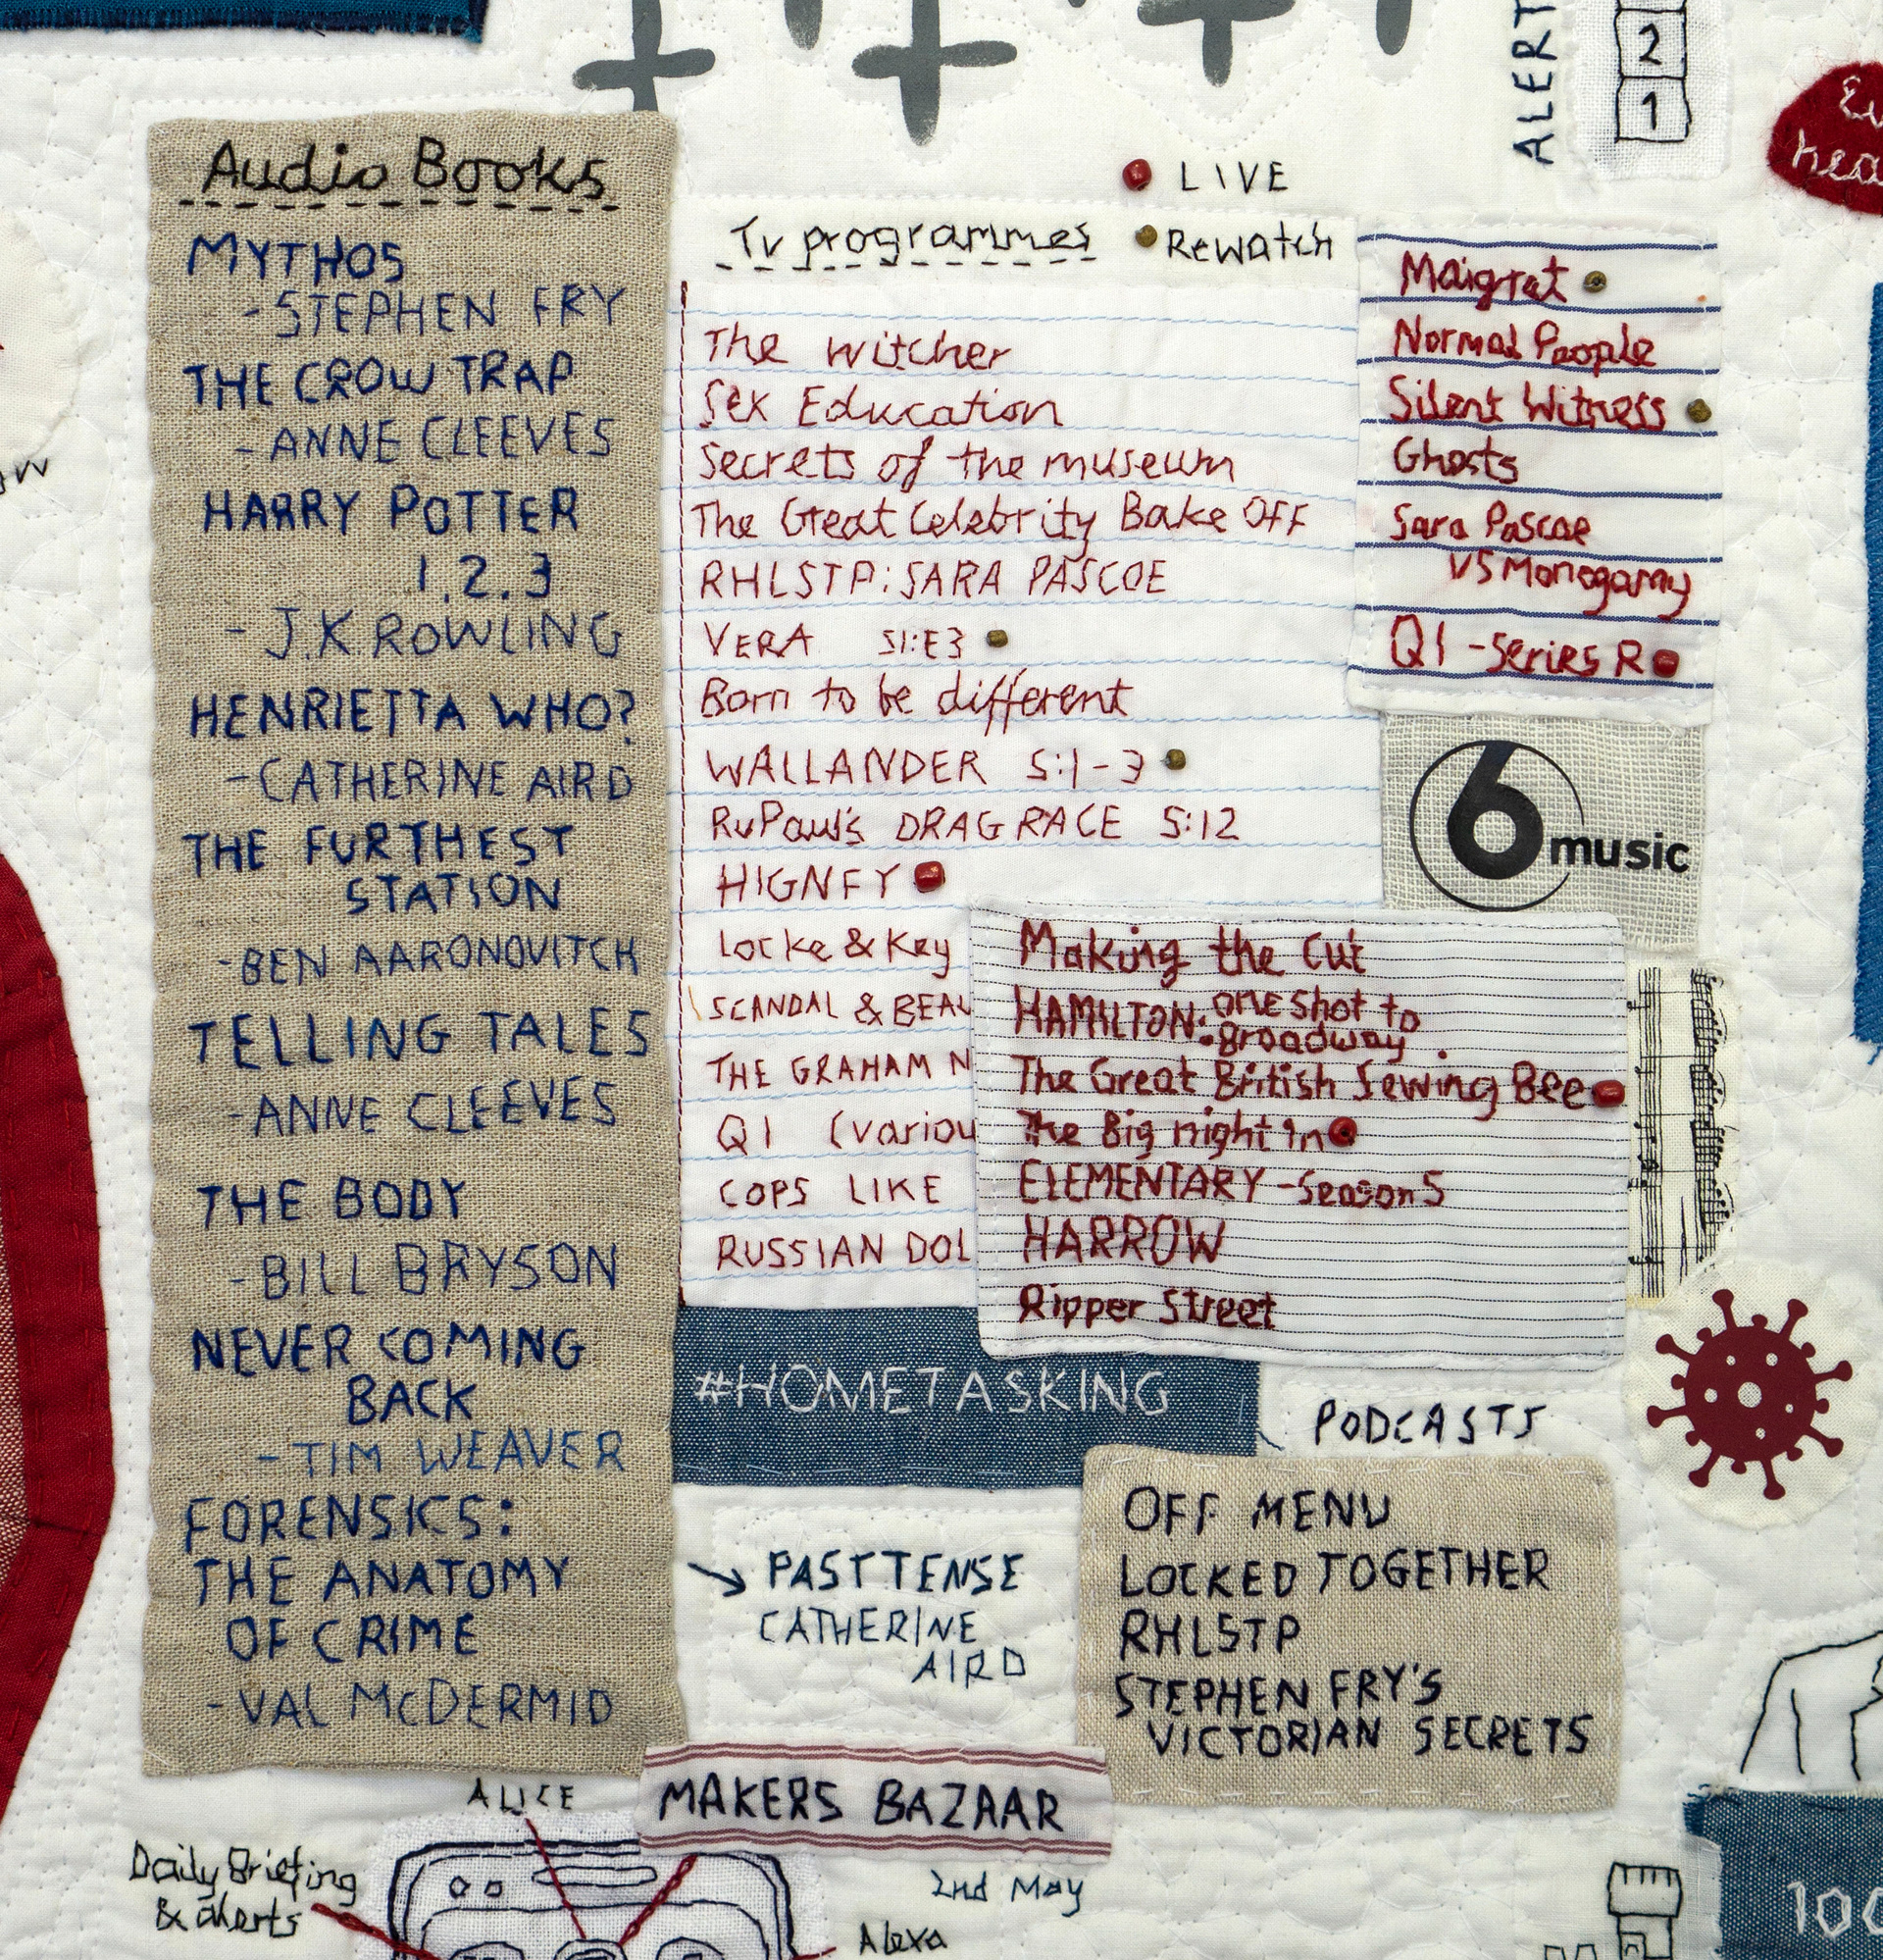 ALERT
2
1
Audio Books
MYTHOS
-STEPHEN FRY
THE CROW TRAP
-ANNE CLEEVES
HARRY POTTER
1.2.3
- J.K.ROWLING
HENRIETTA WHO?
-CATHERINE AIRD
THE FURTHEST
STATION
-BEN AARONOVITCH
TELLING TALES
-ANNE CLEEVES
THE BODY
-BILL BRYSON
NEVER COMING
BACK
-TIM WEAVER
FORENSICS:
THE ANATOMY
OF CRIME
-VAL McDERMID
LIVE
Tv programmes
Rewatch
The witcher
Sex Education
Secrets of the museum
The Great Celebrity Bake OFF
RHLSTP:SARA PASCOE
VERA S1:E3
Born to be different
WALLANDER S:1-3
RuPaul's DRAG RACE S:12
HIGNFY
Locke & Key
SCANDAL & BEAU
THE GRAHAM N
QI (variou
COPS LIKE
RUSSIAN DOL
Maigret
Normal People
Silent Witness
Ghosts
Sara Pascoe
VS Monogamy
QI -Series R
6music
Making the Cut
HAMILTON: one shot to
Broadway
The Great British Sewing Bee
The Big night in
ELEMENTARY -Season 5
HARROW
Ripper Street
#HOMETASKING
PODCASTS
OFF MENU
LOCKED TOGETHER
RHLSTP
STEPHEN FRY'S
VICTORIAN SECRETS
PAST TENSE
CATHERINE
AIRD
MAKERS BAZAAR
2nd May
ALICE
Daily Briefing
& alerts
Alexa
100